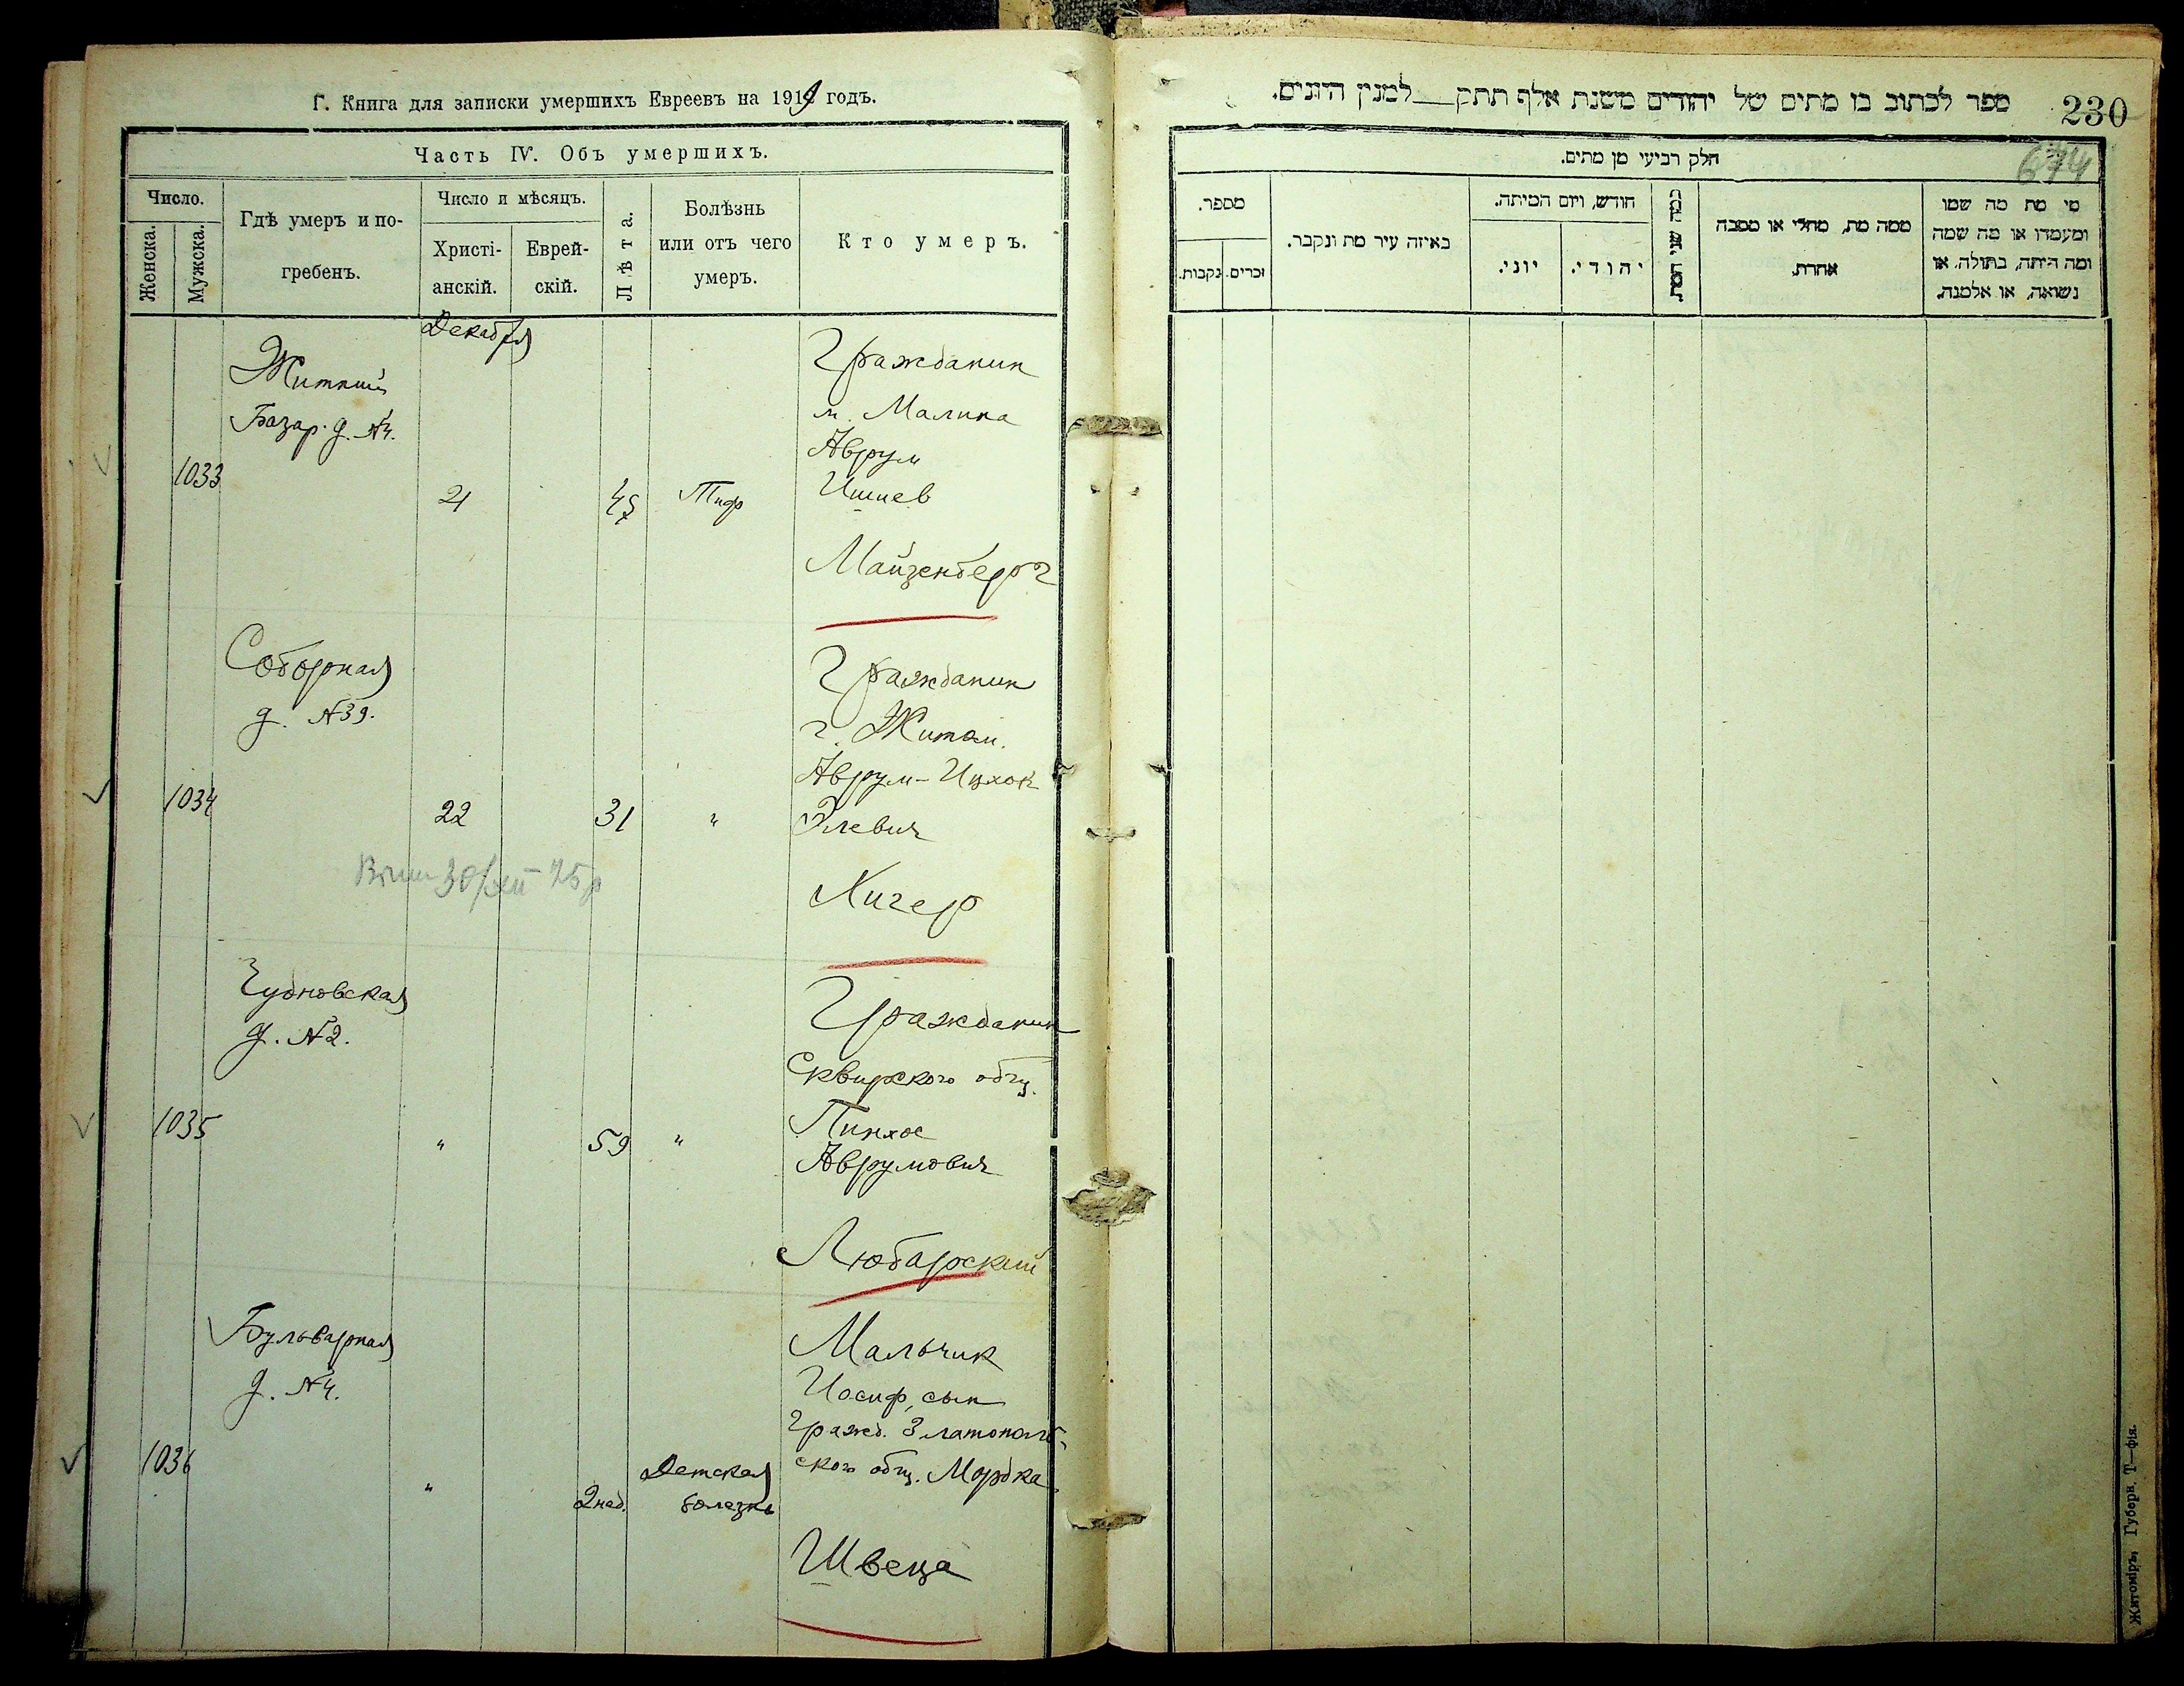 Г. Книга для записки умершихъ Евреевъ на 1919 годъ.
Часть IV. Объ умершихъ.
Число.
Женска.
Мужска.
Гдѣ умеръ и по-
гребенъ.
Число и мѣсяцъ.
Христі-
анскій.
Еврей-
скій.
Лѣта.
Болѣзнь
или отъ чего
умеръ.
Кто умеръ.
Декабря
1033
Житний
Базар. д. №4.
21
45
Тиф
Гражданин
м. Малина
Аврум
Ишиев
Майзенберг
1034
Соборная
д. №39.
22
31
"
Гражданин
г. Житом.
Аврум-Ицхок
Элевич
Кигер
30/XII 25р
1035
Чудновская
д. №2.
"
59
"
Гражданин
Сквирского общ.
Пинхос
Аврумович
Любарский
1036
Бульварная
д. №4.
"
2 нед.
Детская
болезнь
Мальчик
Иосиф, сын
гражд. Златополь-
ского общ. Мордка
Швеца
ספר לכתוב בו מתים של יהודים משנת אלף תתק__למנין היונים.
230
674
חלק רביעי מן מתים.
מי מת מה שמו
ומעמדו או מה שמה
ומה היתה, בתולה, או
נשואה, או אלמנה.
ממה מת, מחלי או מסבה
אחרת.
כמה שני המת
חודש, ויום המיתה.
יהודי.
יוני.
באיזה עיר מת ונקבר.
מספר.
זכרים.
נקבות.
Житоміръ, Губерн. Т—фія.